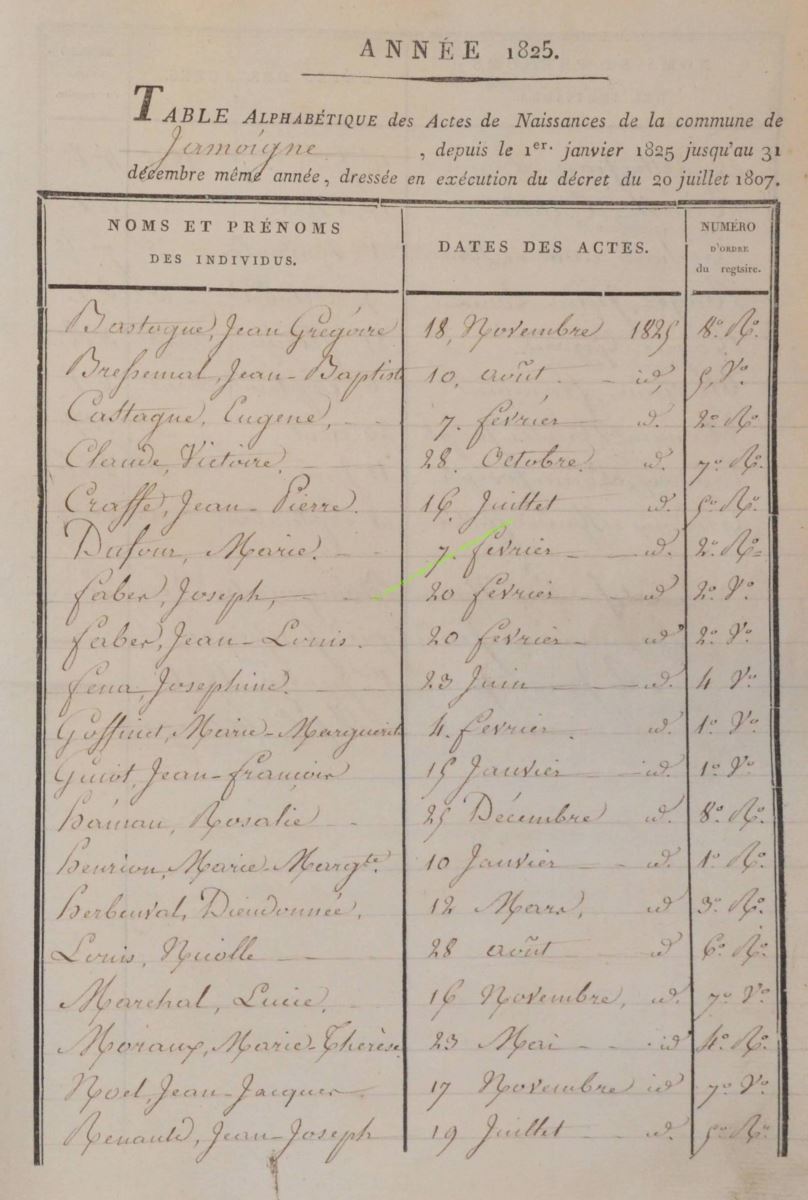 ANNÉE 1825.
TABLE ALPHABÉTIQUE des Actes de Naissances de la commune de
Jamoigne, depuis le 1er. janvier 1825 jusqu'au 31
décembre même année, dressée en exécution du décret du 20 juillet 1807.
NOMS ET PRÉNOMS DES INDIVIDUS. DATES DES ACTES. NUMÉRO D'ORDRE du regtsire.
Bastogne, Jean Grégoire 18, Novembre 1825 8o. Ro.
Bressemal, Jean-Baptist 10, août id, 5, Vo.
Castagne, Eugene, 7. février id. 2o. Ro.
Claude, Victoire, 28. Octobre. id. 7o. Ro.
Craffe, Jean-Pierre. 16. Juillet id. 5o. Ro.
Dufour, Marie. 7. fevrier id. 2o. Ro.
faber, Joseph, 20 fevrier id 2o. Vo.
faber, Jean-Louis. 20 fevrier id 2o. Vo.
fena, Josephine. 23 Juin id. 4 Vo.
Goffinet, Marie-Marguerite 4. fevrier. id. 1o. Vo.
Guiot, Jean-francois 15 Janvier id. 1o. Vo.
Rosalie 25 Décembre id. 8o. Ro.
henrion, Marie-Margte. 10 Janvier id. 1o. Ro.
herbeuval, Dieudonnée, 12 Mars, id 3o. Ro.
Louis, Nicolle 28 août id 6o. Ro.
Marechal, Lucie, 16 Novembre, id. 7o. Vo.
Moraux, Marie-Thérèse 23 Mai id 4o. Ro.
Noel, Jean-Jacques 17 Novembre id 7o. Vo.
Renauld, Jean-Joseph 19 Juillet id. 5o. Ro.